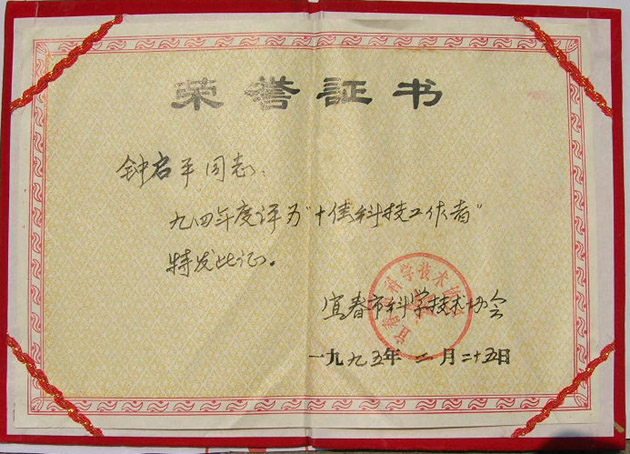 荣誉证书
钟启平同志:
九四年度评为"十佳科技工作者"
特发此证。
宜春市科学技术协会
一九九五年二月二十五日